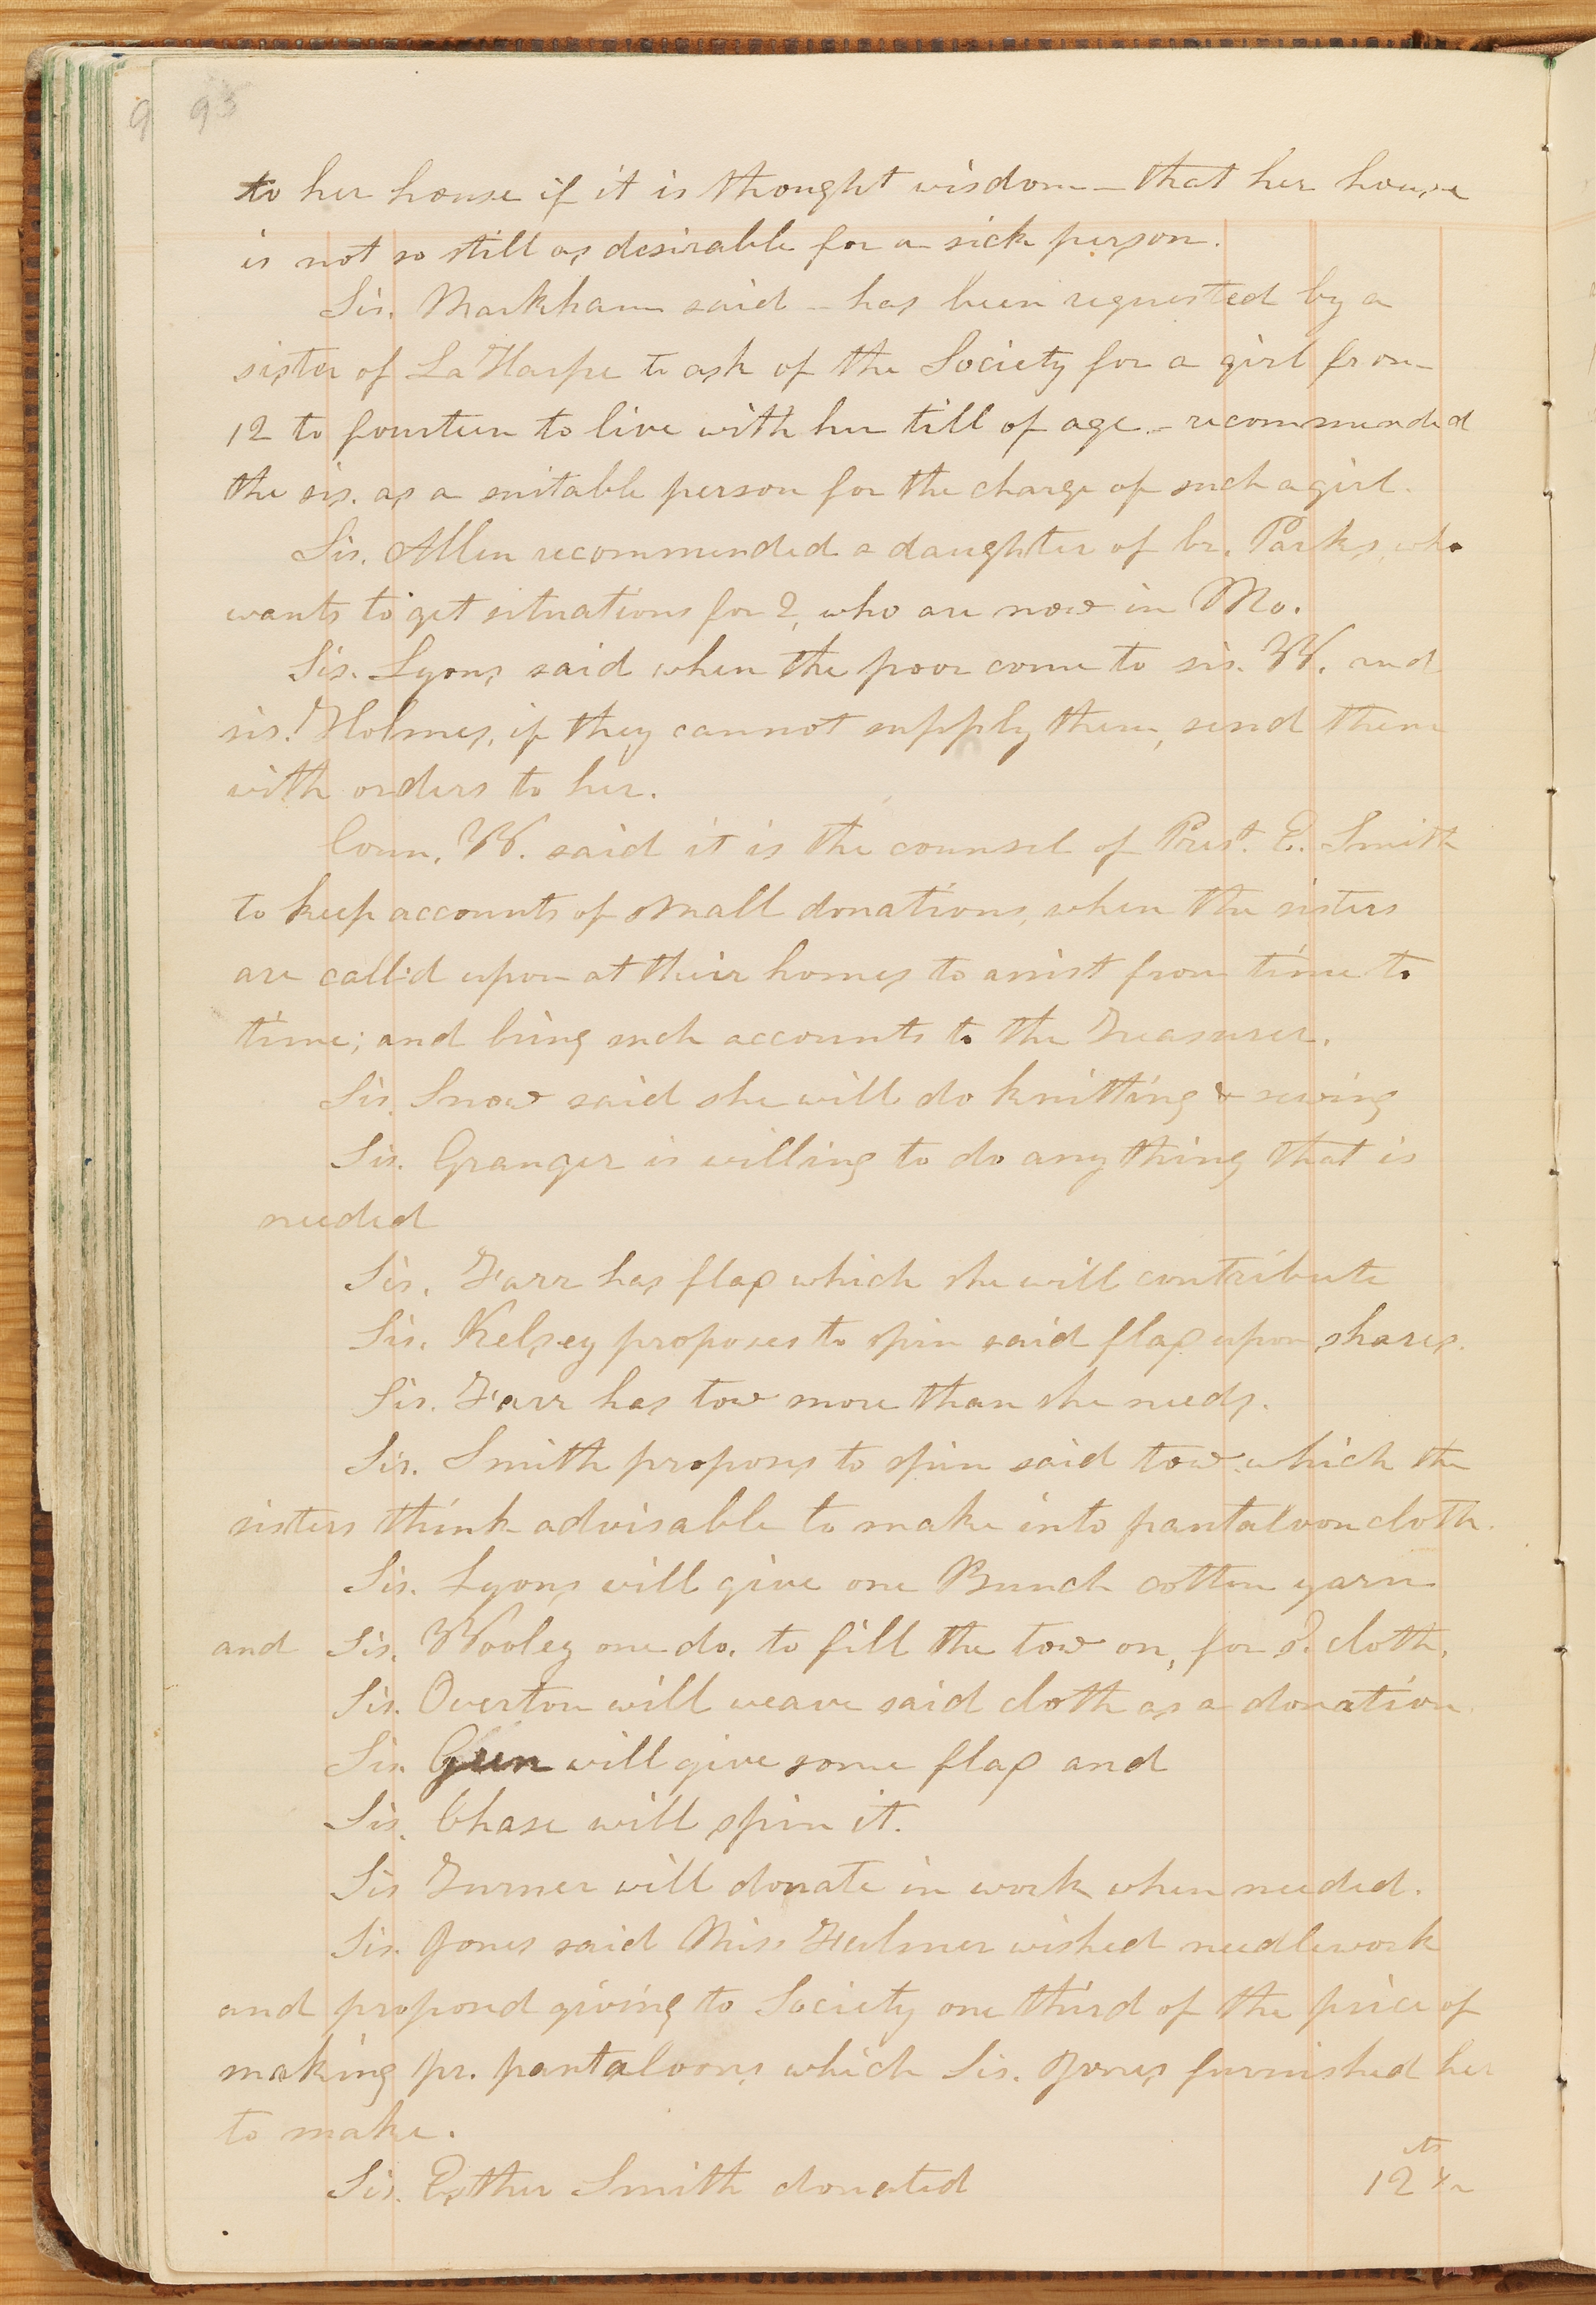 93
to her house if it is thought wisdom — that her house
is not so still as desirable for a sick person.
Sis. Markham said — has been requested by a
sister of La Harpe to ask of the Society for a girl from
12 to fourteen to live with her till of age. — recommended
the sis. as a suitable person for the charge of such a girl.
Sis. Allen recommended a daughter of br. Parks, who
wants to get situations for 2, who are now in Mo.
Sis. Lyons said when the poor come to sis. W. and
sis. Holmes, if they cannot supply them, send them
with orders to her.
Coun. W. said it is the counsel of Prest. E. Smith
to keep accounts of small donations, when the sisters
are call'd upon at their homes to assist from time to
time; and bring such accounts to the Treasurer.
Sis. Snow said she will do knitting & sewing
Sis. Granger is willing to do any thing that is
needed
Sis. Farr has flax which she will contribute
Sis. Kelsey proposes to spin said flax upon shares.
Sis. Farr has tow more than she needs.
Sis. Smith proposes to spin said tow which the
sisters think advisable to make into pantaloon cloth.
Sis. Lyons will give one Bunch cotton yarn
and Sis. Wooley one do. to fill the tow on, for s. cloth.
Sis. Overton will weave said cloth as a donation.
Sis. will give some flax and
Sis. Chase will spin it.
Sis Turner will donate in work when needed.
Sis. Jones said Miss wished needlework
and propos'd giving to Society one third of the price of
making pr. pantaloons which Sis. Jones furnished her
to make.
Sis. Esther Smith donated 12 ½ cts